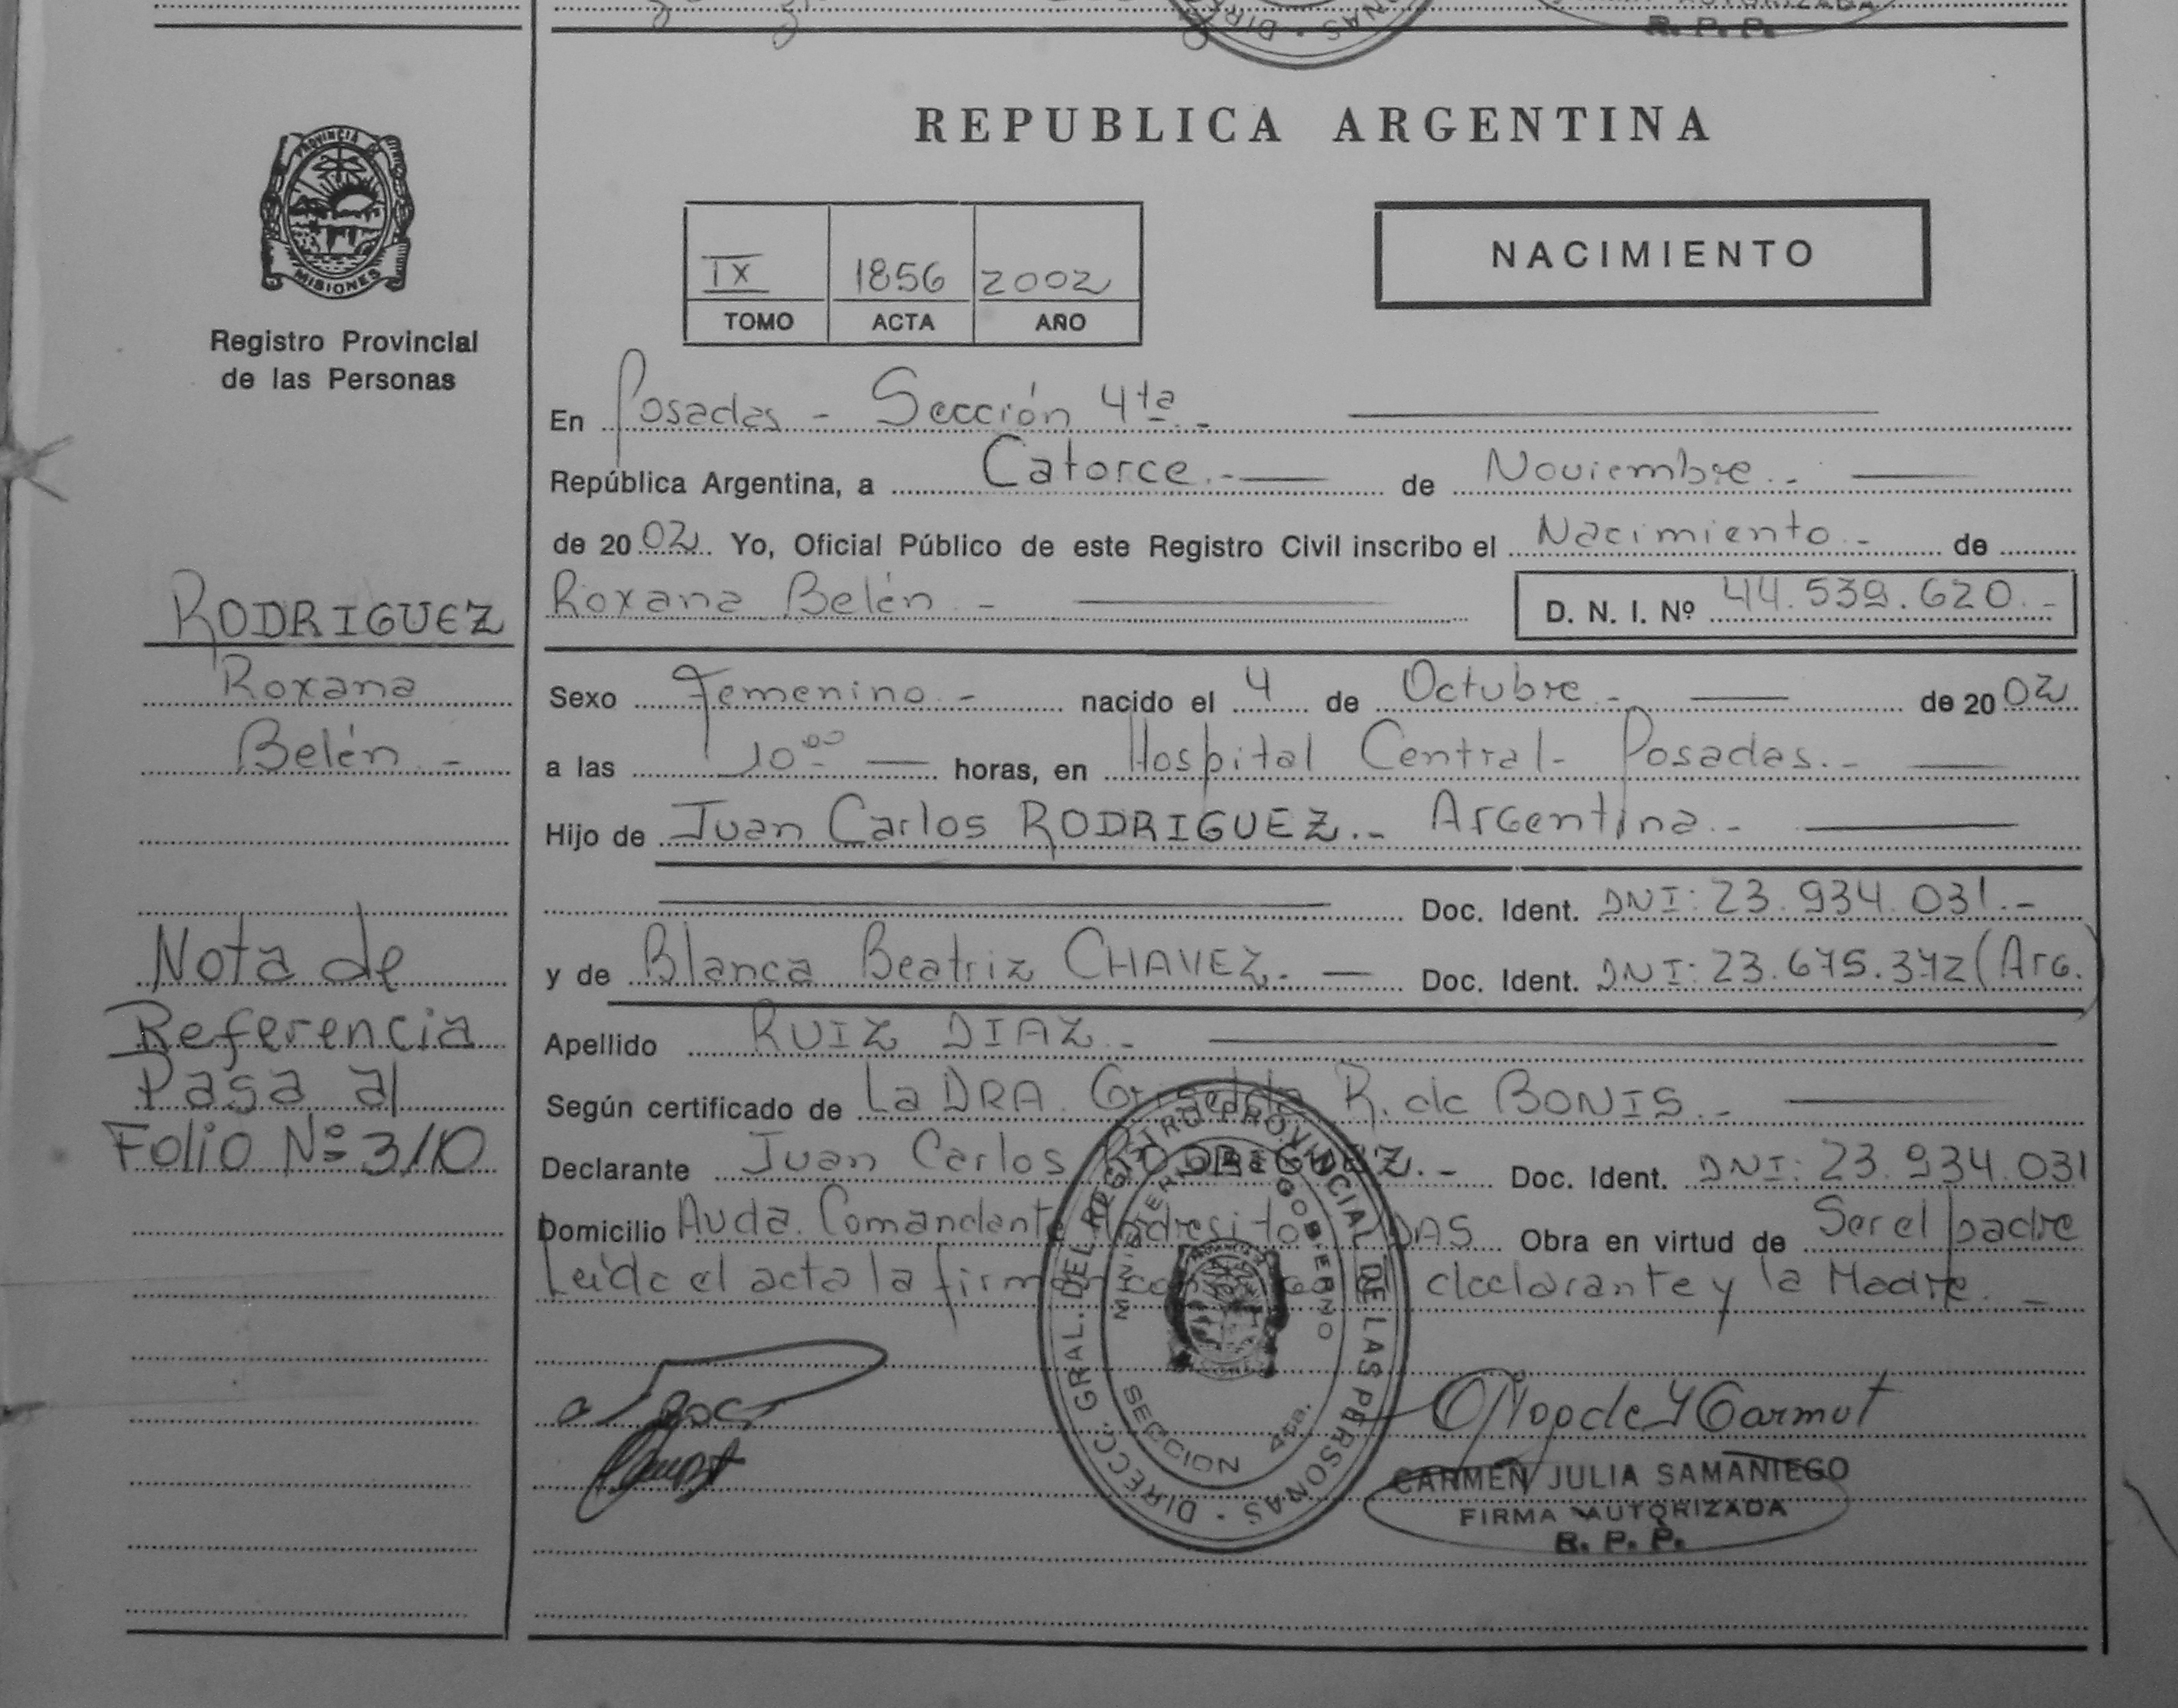 R. P. P.
REPUBLICA ARGENTINA
PROVINCIA DE MISIONES
Registro Provincial
de las Personas
NACIMIENTO
IX 1856 2002
TOMO ACTA AÑO
En Posadas - Sección 4ta.-
República Argentina, a Catorce.- de Noviembre.-
de 2002. Yo, Oficial Público de este Registro Civil inscribo el Nacimiento.- de
Roxana Belén.- D. N. I. Nº 44.539.620.-
RODRIGUEZ
Roxana
Belén.-
Sexo Femenino.- nacido el 4 de Octubre.- de 2002
a las 10:00 horas, en Hospital Central- Posadas.-
Hijo de Juan Carlos RODRIGUEZ.- Argentina.-
Doc. Ident. DNI: 23.934.031.-
y de Blanca Beatriz CHAVEZ.- Doc. Ident. DNI: 23.675.372 (Arg.)
Apellido RUIZ DIAZ.-
Según certificado de La DRA. Griselda R. de BONIS.-
Declarante Juan Carlos RODRIGUEZ.- Doc. Ident. DNI: 23.934.031
Domicilio Avda. Comandante Andresito DAS Obra en virtud de Ser el padre
Leída el acta la firman declarante y la Madre.-
Nota de
Referencia
Pasa al
Folio Nº 310
DIRECC. GRAL. DEL REGISTRO PROVINCIAL DE LAS PERSONAS
MINISTERIO DE GOBIERNO
SECCION 4ta.
CARMEN JULIA SAMANIEGO
FIRMA AUTORIZADA
R. P. P.